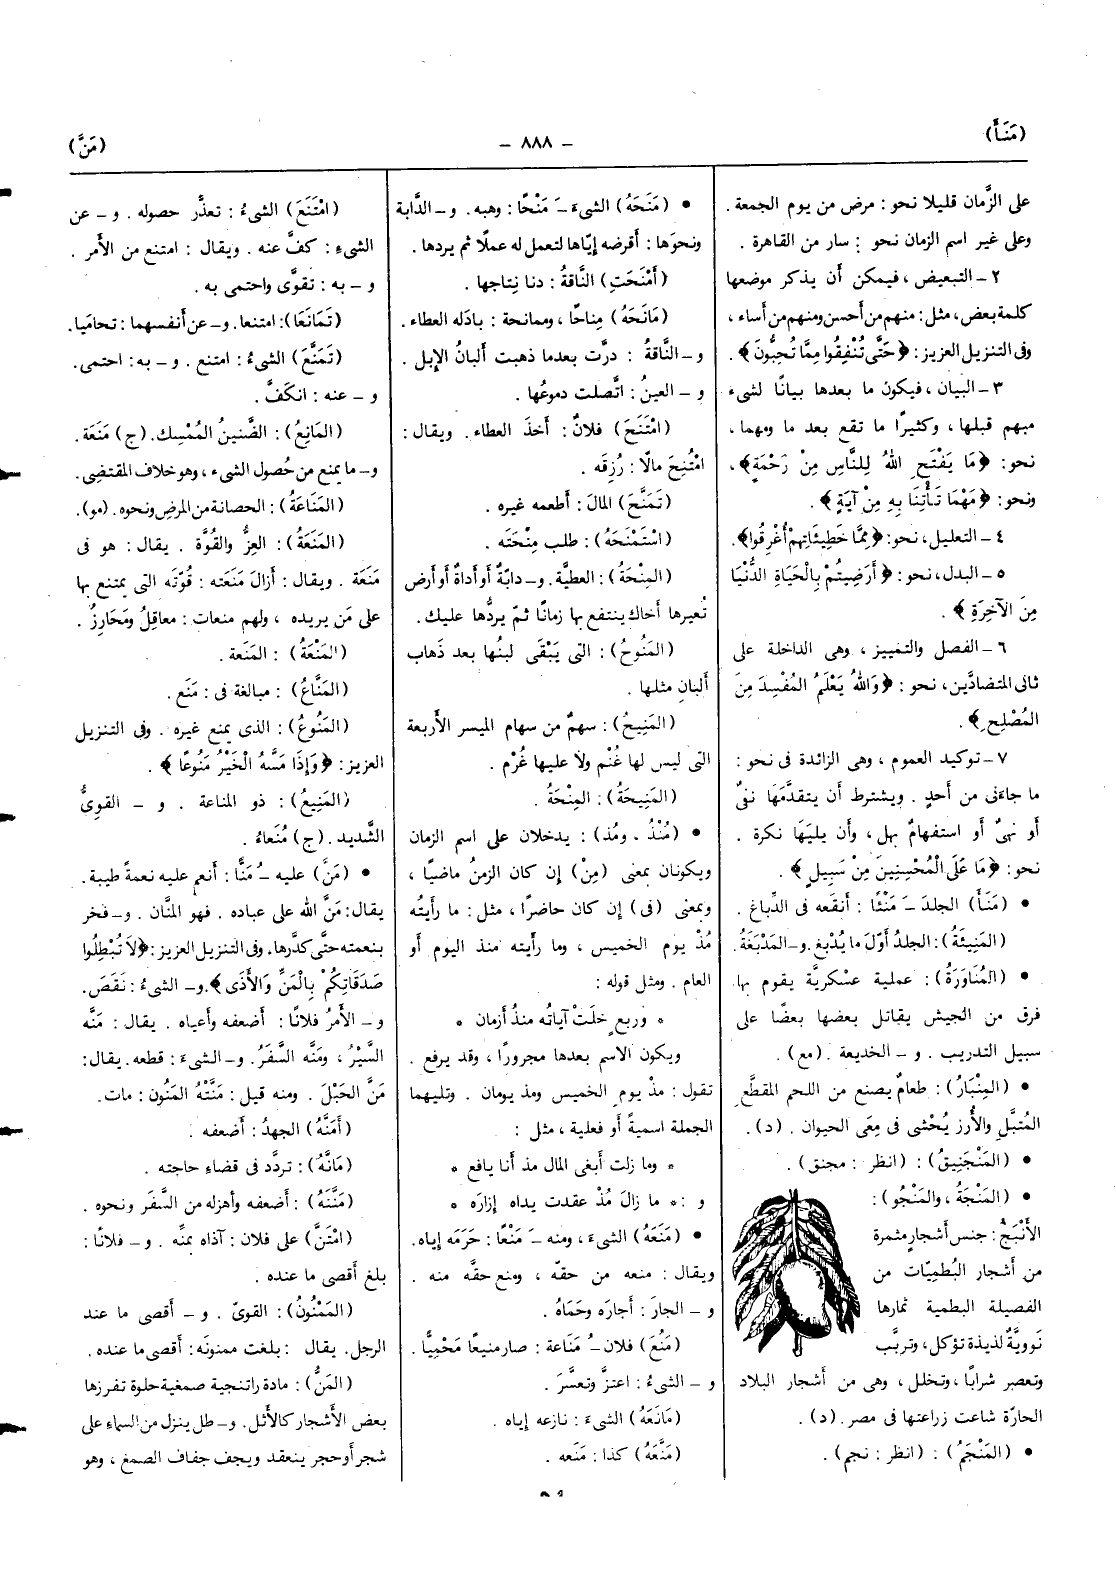 (مَنَأَ)
– ٨٨٨ –
(مَنَّ)
على الزَّمان قليلا نحو : مرض من يوم الجمعة .
وعلى غير اسم الزمان نحو : سار من القاهرة .
٢ – التبعيض ، فيمكن أن يذكر موضعها
كلمة بعض ، مثل : منهم من أحسن ومنهم من أساء ،
وفى التنزيل العزيز : ﴿ حَتَّى تُنْفِقُوا مِمَّا تُحِبُّونَ ﴾ .
٣ – البيان ، فيكون ما بعدها بيانًا لشىء
مبهم قبلها ، وكثيرًا ما تقع بعد ما ومهما ،
نحو : ﴿ مَا يَفْتَحِ اللهُ لِلنَّاسِ مِنْ رَحْمَةٍ ﴾ ،
ونحو : ﴿ مَهْمَا تَأْتِنَا بِهِ مِنْ آيَةٍ ﴾ .
٤ – التعليل ، نحو : ﴿ مِمَّا خَطِيئَاتِهِمْ أُغْرِقُوا ﴾ .
٥ – البدل ، نحو : ﴿ أَرَضِيتُمْ بِالْحَيَاةِ الدُّنْيَا
مِنَ الآخِرَةِ ﴾ .
٦ – الفصل والتمييز ، وهى الداخلة على
ثانى المتضادَّين ، نحو : ﴿ وَاللهُ يَعْلَمُ المُفْسِدَ مِنَ
المُصْلِحِ ﴾ .
٧ – توكيد العموم ، وهى الزائدة فى نحو :
ما جاءَنى من أحدٍ . ويشترط أن يتقدَّمَهَا نفىٌ
أو نهىٌ أو استفهامٌ بهل ، وأن يليَهَا نكرة .
نحو : ﴿ مَا عَلَى الْمُحْسِنِينَ مِنْ سَبِيلٍ ﴾ .
• (مَنَأَ) الجلدَ ـَ مَنْئًا : أنقعه فى الدِّباغ .
(المَنِيئَةُ) : الجلدُ أوّلَ ما يُدْبغ . و – المَدْبَغَةُ .
• (المُنَاوَرَةُ) : عملية عسْكريَّة يقوم بها
فرق من الجيش يقاتل بعضها بعضًا على
سبيل التدريب . و – الخديعة . (مع) .
• (المِنْبَارُ) : طعامٌ يصنع من اللحم المقطَّع
المُتبَّل والأرز يُحْشى فى مِعَى الحيوان . (د) .
• (المَنْجَنِيقُ) : (انظر : مجنق) .
• (المَنْجَةُ ، والمَنْجُو) :
الأَنْبَجُ : جنس أشجارٍ مثمرة
من أشجار البُطمِيّات من
الفصيلة البطمية ثمارها
نَوويَّةٌ لذيذة تؤكل ، وتربَّب
وتعصر شرابًا ، وتخلل ، وهى من أشجار البلاد
الحارّة شاعت زراعتها فى مصر . (د) .
• (المَنْجَمُ) : (انظر : نجم) .
• (مَنَحَهُ) الشىءَ ـَ مَنْحًا : وهبه . و – الدَّابة
ونحوَها : أقرضه إيّاها لتعمل له عملًا ثم يردها .
(أَمْنَحَتِ) النَّاقةُ : دنا نِتاجها .
(مَانَحَهُ) مِناحًا ، وممانحة : بادَله العطاء .
و – النَّاقةُ : درَّت بعدما ذهبت ألبانُ الإبل .
و – العينُ : اتَّصلت دموعُها .
(امْتَنَحَ) فلانٌ : أخذَ العطاء . ويقال :
امْتُنِحَ مالًا : رُزِقَه .
(تَمَنَّحَ) المالَ : أطعمه غيره .
(اسْتَمْنَحَهُ) : طلب مِنْحَتَه .
(المِنْحَةُ) : العطيَّة . و – دابّةٌ أو أداةٌ أو أرض
تُعيرها أخاك ينتفع بها زمانًا ثمّ يردُّها عليك .
(المَنُوحُ) : التى يَبْقَى لبنُها بعد ذهاب
ألبانِ مثلها .
(المَنِيحُ) : سهمٌ من سهام الميسر الأَربعة
التى ليس لها غُنْم ولا عليها غُرْم .
(المَنِيحَةُ) : المِنْحَةُ .
• (مُنْذُ . ومُذ) : يدخلان على اسم الزمان
ويكونان بمعنى (مِنْ) إن كان الزمنُ ماضيًا ،
وبمعنى (فى) إن كان حاضرًا ، مثل : ما رأيتُه
مُذْ يوم الخميس ، وما رأيته منذ اليوم أو
العام . ومثل قوله :
* وربعٍ خلَتْ آياتُه منذُ أزمان *
ويكون الاسم بعدها مجرورًا ، وقد يرفع .
تقول : مذْ يوم الخميس ومذ يومان . وتليهما
الجملة اسميةً أو فعلية ، مثل :
* وما زلت أبغى المال مذ أنا يافع *
و : * ما زالَ مُذْ عقدت يداه إزارَه *
• (مَنَعَهُ) الشىءَ ، ومنه ـَ مَنْعًا : حَرَمَه إياه .
ويقال : منعه من حقّه ، ومنع حقَّه منه .
و – الجارَ : أجارَه وحَمَاهُ .
(مَنُعَ) فلان ـُ مَنَاعة : صار منيعًا مَحْمِيًّا .
و – الشىءُ : اعتزَّ وتعسَّرَ .
(مَانَعَهُ) الشىءَ : نازعه إياه .
(مَنَّعَهُ) كذا : مَنَعه .
(امْتَنَعَ) الشىءُ : تعذَّر حصوله . و – عن
الشىءِ : كفَّ عنه . ويقال : امتنع من الأَمر .
و – به : تقوَّى واحتمى به .
(تَمَانَعَا) : امتنعا . و – عن أنفسهما : تحامَيا .
(تَمَنَّعَ) الشىءُ : امتنع . و – به : احتمى .
و – عنه : انكَفَّ .
(المَانِعُ) : الضَّنينُ المُمْسِك . (ج) مَنَعَة .
و – ما يمنع من حُصول الشىء ، وهو خلاف المقتضِى .
(المَنَاعَةُ) : الحصانة من المرضِ ونحوه . (مو) .
(المَنَعَةُ) : العِزُّ والقُوَّة . يقال : هو فى
مَنَعَة . ويقال : أزالَ مَنَعَته : قُوّتَه التى يمتنع بها
على مَن يريده ، ولهم منعات : معاقِلُ ومَحَارِزُ .
(المَنْعَةُ) : المَنَعة .
(المَنَّاعُ) : مبالغة فى : مَنَع .
(المَنُوعُ) : الذى يمنع غيره . وفى التنزيل
العزيز : ﴿ وَإِذَا مَسَّهُ الْخَيْرُ مَنُوعًا ﴾ .
(المَنِيعُ) : ذو المناعة . و – القوىُّ
الشَّديد . (ج) مُنَعاءُ .
• (مَنَّ) عليه ـُ مَنًّا : أنعم عليه نعمةً طيبة .
يقال : مَنَّ الله على عباده . فهو المنَّان . و – فخر
بنعمته حتَّى كدَّرها . وفى التنزيل العزيز : ﴿ لَا تُبْطِلُوا
صَدَقَاتِكُمْ بِالْمَنِّ وَالْأَذَى ﴾ . و – الشىءُ : نَقَصَ .
و – الأَمرُ فلانًا : أضعفه وأعياه . يقال : مَنَّه
السَّيْرُ ، ومَنَّه السَّفَرُ . و – الشىءَ : قطعه . يقال :
مَنَّ الحَبْلَ . ومنه قيل : مَنَّتْهُ المَنُون : مات .
(أَمَنَّهُ) الجهدُ : أضعفه .
(مَانَّهُ) : تردَّد فى قضاءِ حاجته .
(مَنَّنَهُ) : أضعفه وأهزله من السَّفَر ونحوه .
(امْتَنَّ) على فلان : آذاه بمنِّه . و – فلانًا :
بلغ أقصى ما عنده .
(المَمْنُونُ) : القوىّ . و – أقصى ما عند
الرجل . يقال : بلغت ممنونَه : أقصى ما عنده .
(المَنُّ) : مادة راتنجية صمغية حلوة تفرزها
بعض الأشجار كالأثل . و – طل ينزل من السماء على
شجر أو حجر ينعقد ويجف جفاف الصمغ ، وهو